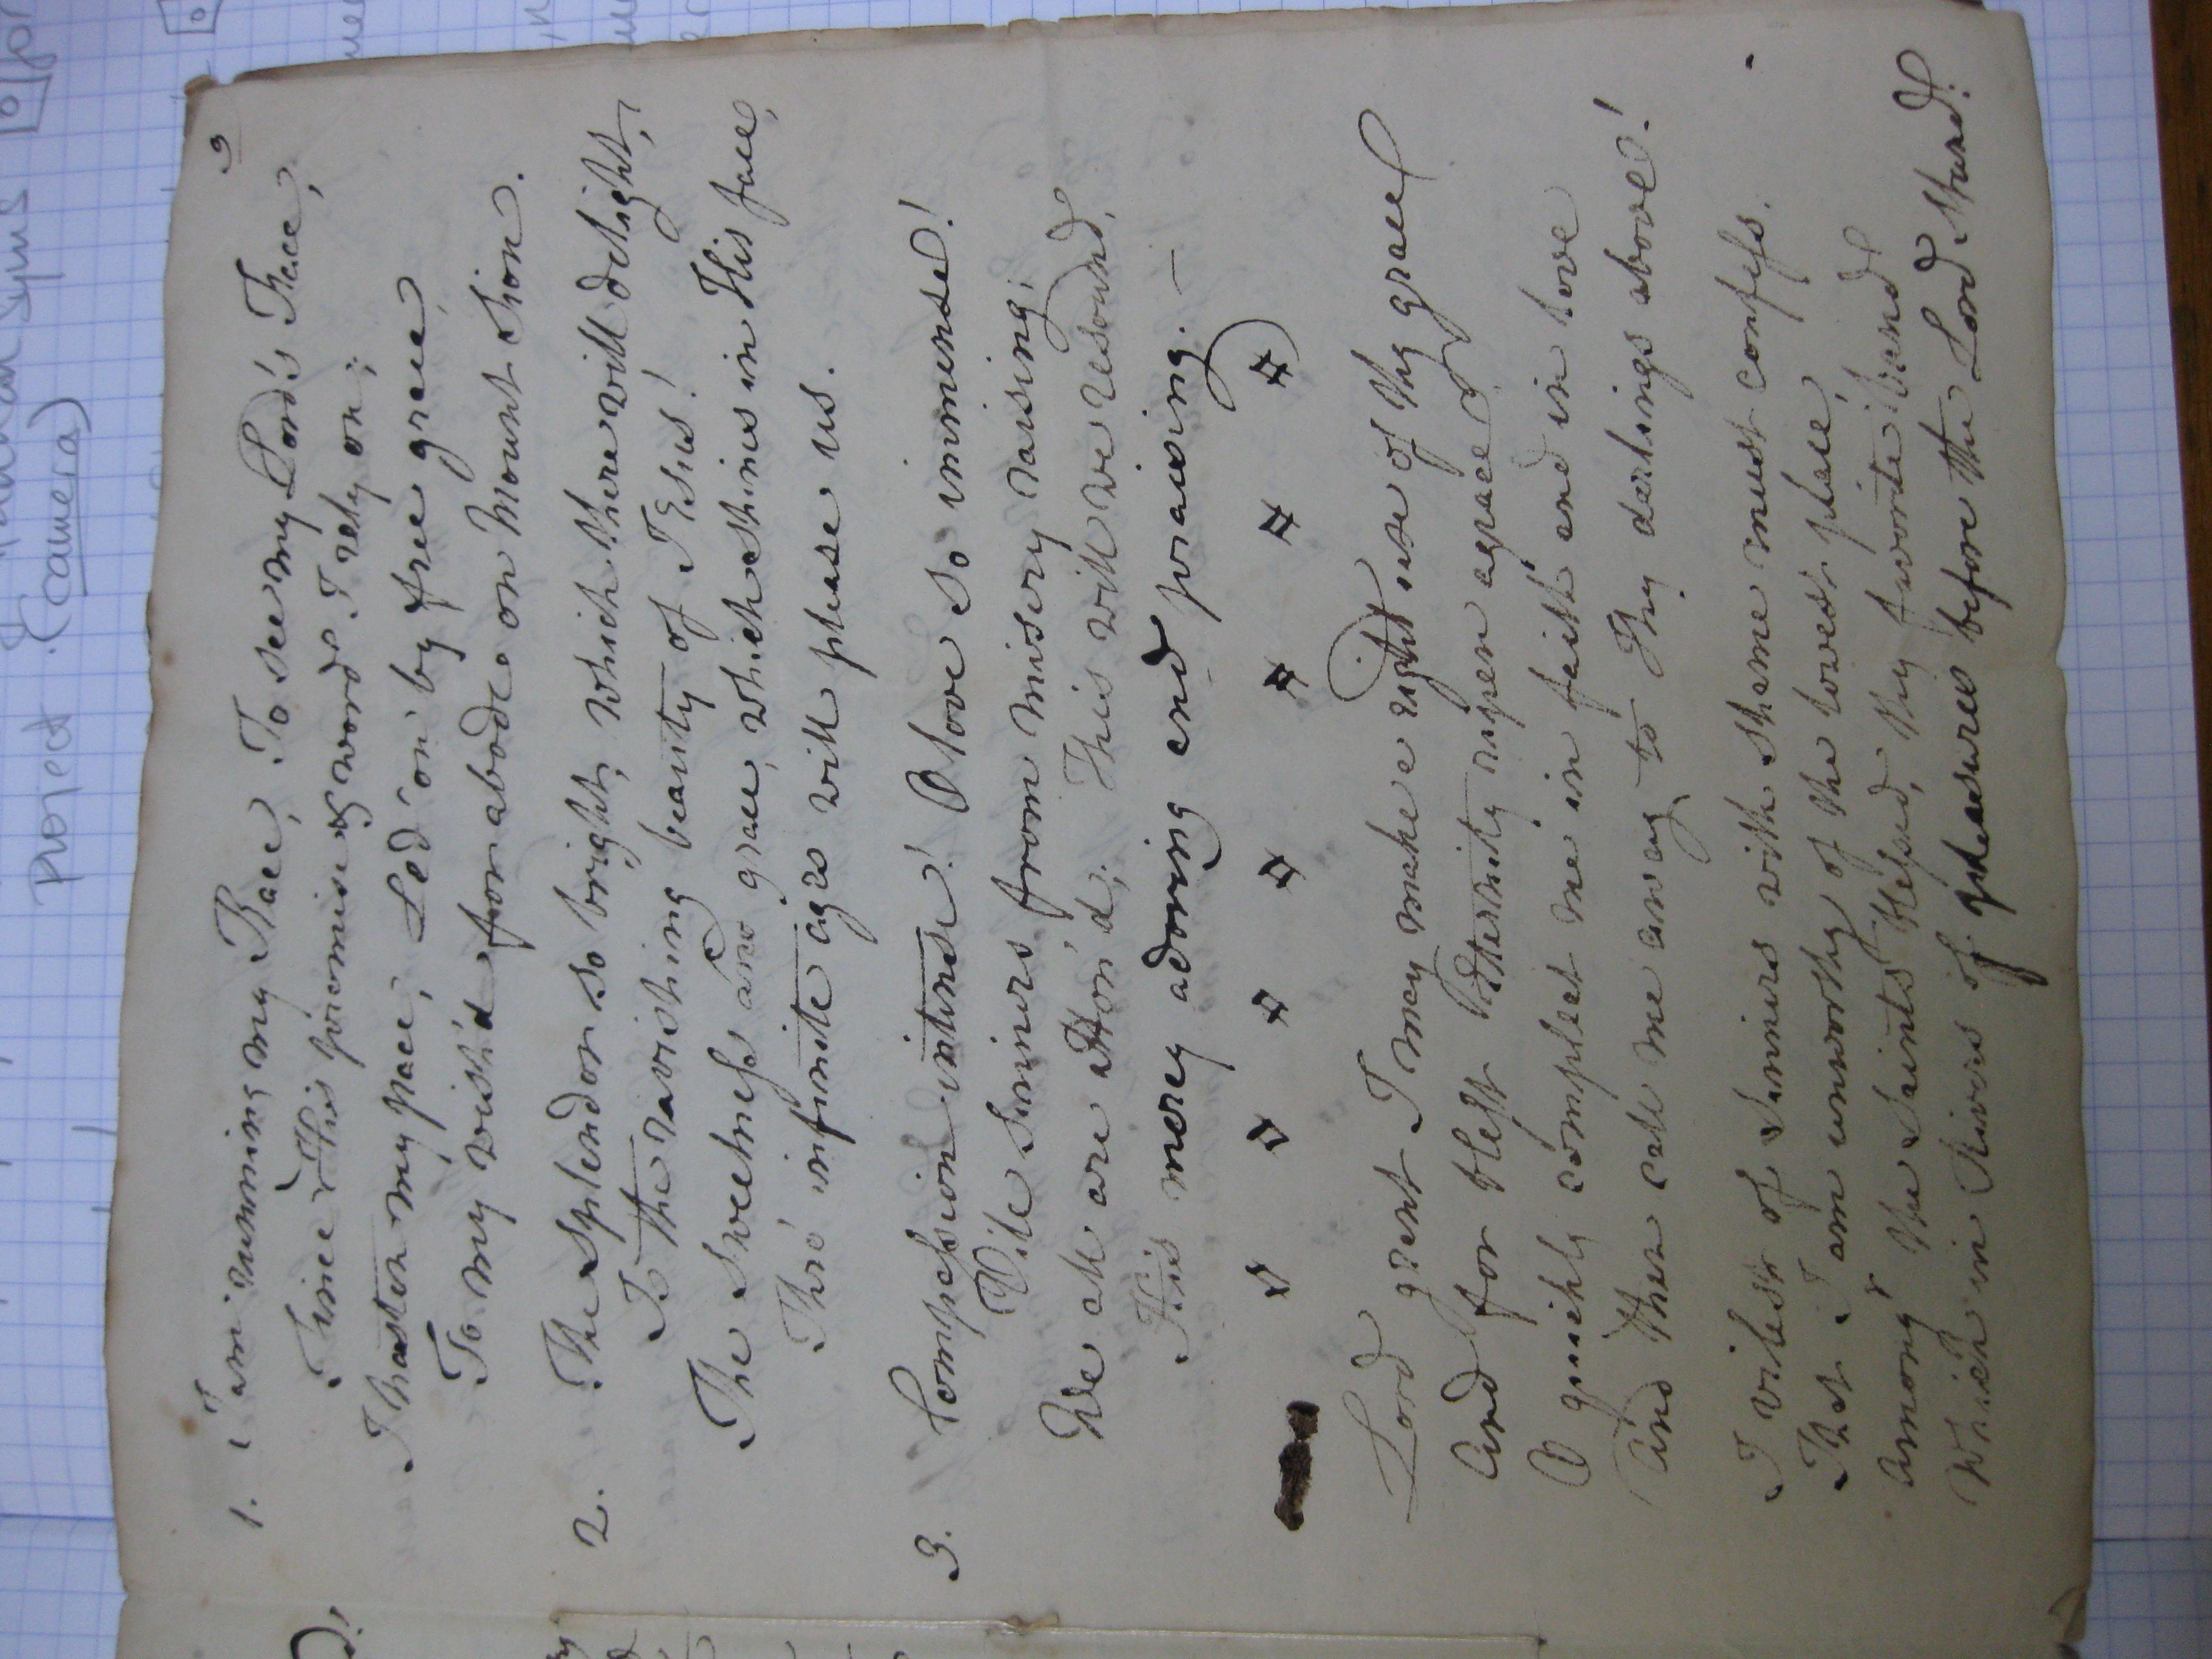 Syms for
Project (camera)
9
1. I am running my Race, To see my Lord's Face,
Since His promise & word I rely on;
I hasten my pace, Led on by free grace,
To my wish'd for abode on Mount Sion.
2. The Splendor so bright, which there will delight,
Is the ravishing beauty of JEsus!
The Sweetness and grace, which shines in His face,
Thro' infinite ages will please us.
3. Compassion intense! O love so immense!
Vile Sinners from misery raising;
We all are Aton'd; This will we resound,
His mercy adoring and praising. —
Lord grant I may make a right use of thy grace
And for blest Eternity ripen apace
O quickly compleat me in faith and in love
And then call me away to Thy darlings above!
I vilest of Sinners with Shame must confess.
That I am unworthy of the lowest place,
Among the Saints blessed, thy favorite band
Which in Rivers of pleasures before the Lord Stand!